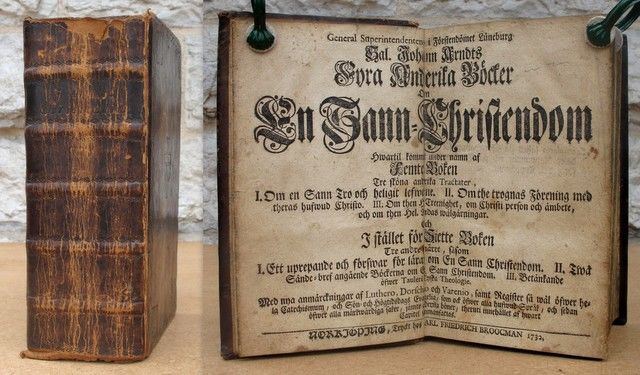 General Superintendentens i Förstendömet Lüneburg
Sal. Johann Arndts
Fyra Anderika Böcker
Om
En Sann-Christendom
Hwartil komma under namn af
Femte Boken
Tre sköna andrika Tractater,
I. Om en Sann Tro och heligit lefwerne. II. Om the trognas Förening med
theras hufwud Christo. III. Om then H. Treenighet, om Christi person och ämbete,
och om then Hel. Andas wälgärningar.
och
I stället för Siette Boken
Tre andra
I. Ett uprepande och förswar för lära om En Sann Christendom. II. Twå
Sände-bref angående Böckerna om Sann Christendom. III. Betänkande
öfwer Taulers Theologie.
Med nya anmärckningar af Luthero, Dorscheo och Varenio, samt Register så wäl öfwer he-
la Catechismum, och Sön- och Högtidsdags Evangelia, som ock öfwer alla hufwud och sedan
öfwer alla märkwärdiga saker, böker; innehållet af hwart
NORKIÖPING, Tryckt hos CARL FRIEDRICH BROOCMAN 1732.